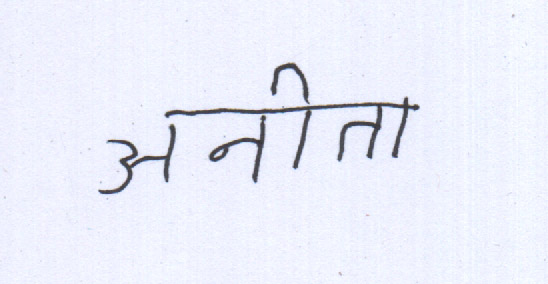 अनीता